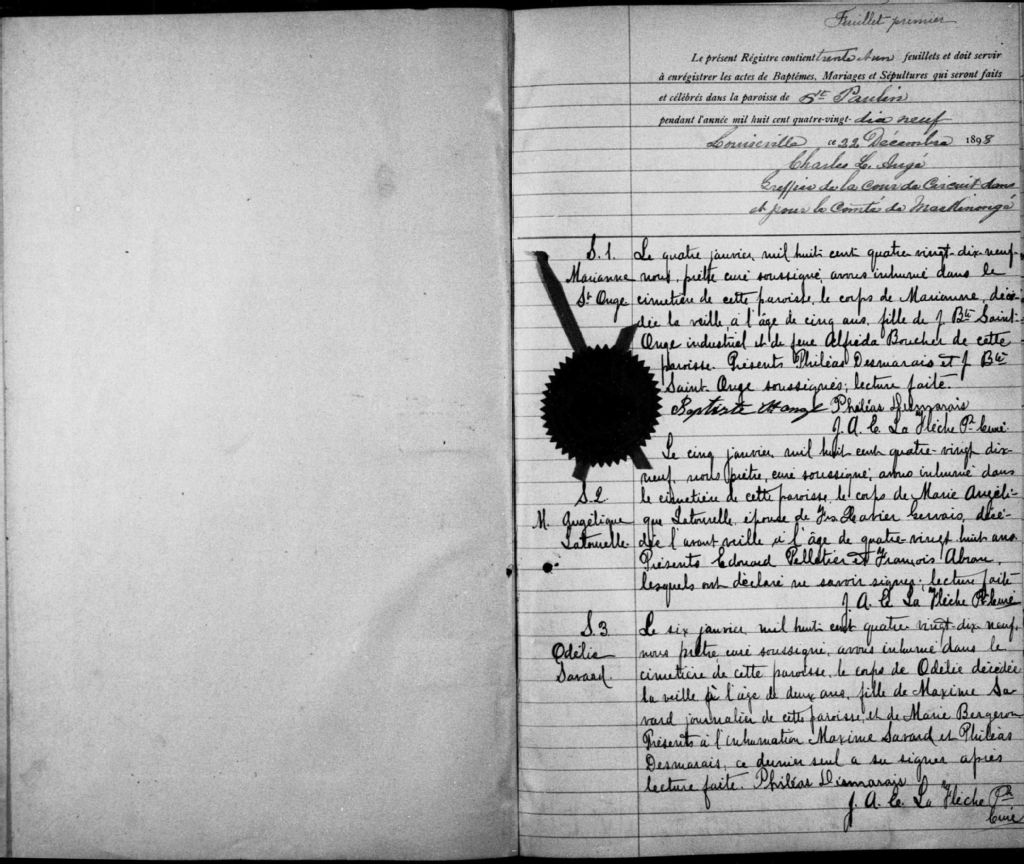 Feuillet premier
Le présent Régistre contient trente & un feuillets et doit servir
à enrégistrer les actes de Baptêmes, Mariages et Sépultures qui seront faits
et célébrés dans la paroisse de St Paulin
pendant l'année mil huit cent quatre-vingt- dix neuf
Louiseville ce 22 Décembre 1898
Charles L. Augé
Greffier de la Cour de Circuit dans
et pour le Comté de Maskinongé
S. 1. Le quatre janvier, mil huit cent quatre-vingt-dix-neuf,
Marianne nous, prêtre curé soussigné, avons inhumé dans le
St Onge cimetière de cette paroisse, le corps de Marianne, décé-
dée la veille, à l'âge de cinq ans, fille de J. Bte Saint-
Onge industriel et de feue Alfréda Boucher de cette
paroisse. Présents Philéas Desmarais et J. Bte
Saint-Onge soussignés; lecture faite.
Baptiste Philéas Desmarais
J. A. E. La Flèche Ptr Curé.
Le cinq janvier, mil huit cent quatre-vingt dix-
neuf, nous prêtre, curé soussigné, avons inhumé dans
S. 2. le cimetière de cette paroisse, le corps de Marie Angéli-
M. Angélique que Latourelle, épouse de Frs Xavier Gervais, décé-
Latourelle dée l'avant-veille à l'âge de quatre-vingt huit ans.
Présents Edouard Pelletier et François Abran,
lesquels ont déclaré ne savoir signer; lecture faite
J. A. E. La Flèche Ptr Curé
S. 3 Le six janvier, mil huit cent quatre-vingt-dix-neuf,
Odélie nous prêtre curé soussigné, avons inhumé dans le
Savard. cimetière de cette paroisse, le corps de Odélie décédée
la veille à l'âge de deux ans, fille de Maxime Sa-
vard journalier de cette paroisse, et de Marie Bergeron
Présents à l'inhumation Maxime Savard et Philéas
Desmarais, ce dernier seul a su signer après
lecture faite. Philéas Desmarais
J. A. E. La Flèche Ptr
Curé